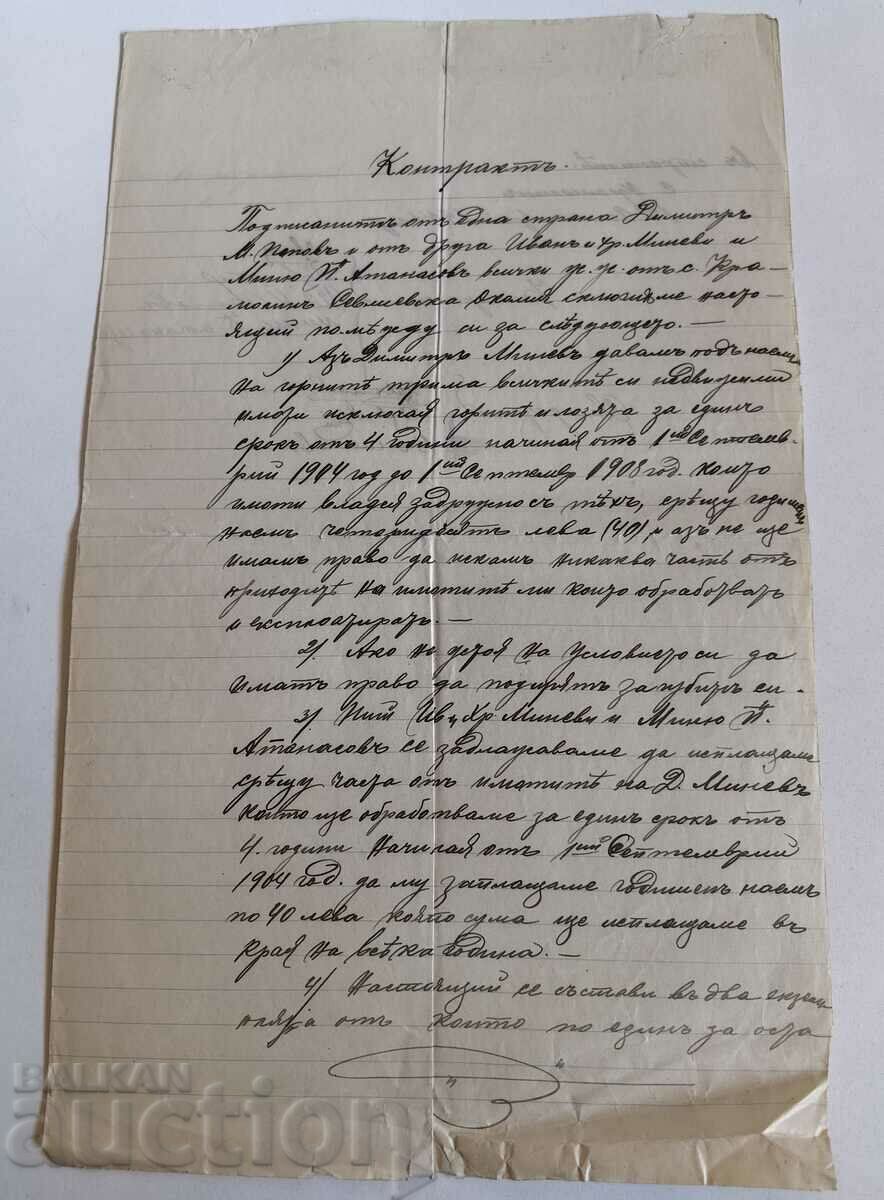 Контрактъ.
Подписанитѣ отъ една страна Димитръ
М. Поповъ и отъ друга Иванъ и Хр. Миневи и
Миню П. Атанасовъ всички ж. ж. отъ с. Кра-
молинъ Севлиевска Околия сключихме насто-
ящий помѣжду си за слѣдующето. —
1) Азъ Димитръ Миневъ давамъ подъ наемъ
на горнитѣ трима всичкитѣ си недвижими
имоти исключая горитѣ и лозята за единъ
срокъ отъ 4 години начиная отъ 1ий Септемв-
рий 1904 год до 1ий Септемвр 1908 год. които
имоти владея задружно съ тѣхъ, срѣщу годишенъ
наемъ четиридесять лева (40) и азъ не ще
имамъ право да искамъ никаква часть отъ
приходитѣ на имотитѣ ми които обработватъ
и експлоатиратъ. —
2) Ако не устоя на условието си да
иматъ право да подирятъ загубитѣ си. -
3) Ний Ив. и Хр. Миневи и Миню П.
Атанасовъ се задлжаваме да исплащаме
срѣщу частa отъ имотитѣ на Д. Миневъ
които ще обработваме за единъ срокъ отъ
4. години начиная отъ 1ий Септемврий
1904 год. да му заплащаме годишенъ наемъ
по 40 лева която сума ще исплащаме въ
края на всѣка година. —
4) Настоящий се състави въ два екзем-
пляра отъ които по единъ за оста
BALKAN
auction